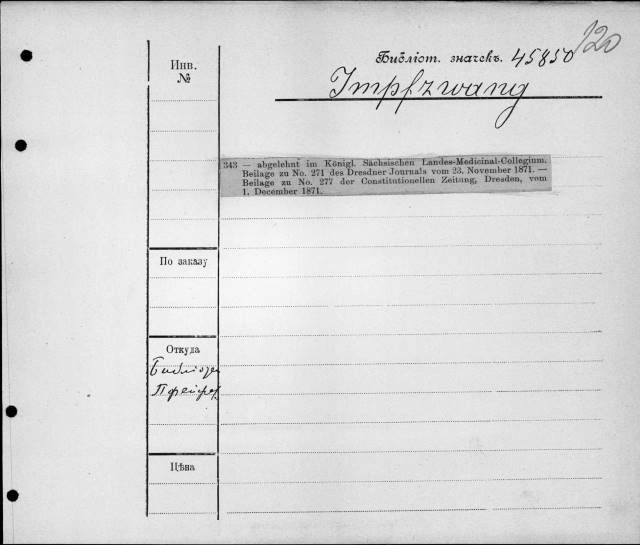 120
Библіот. значекъ. 45850
Impfzwang
Инв.
№
343 — abgelehnt im Königl. Sächsischen Landes-Medicinal-Collegium.
Beilage zu No. 271 des Dresdner Journals vom 23. November 1871. —
Beilage zu No. 277 der Constitutionellen Zeitung, Dresden, vom
1. December 1871.
По заказу
Откуда
Цѣна